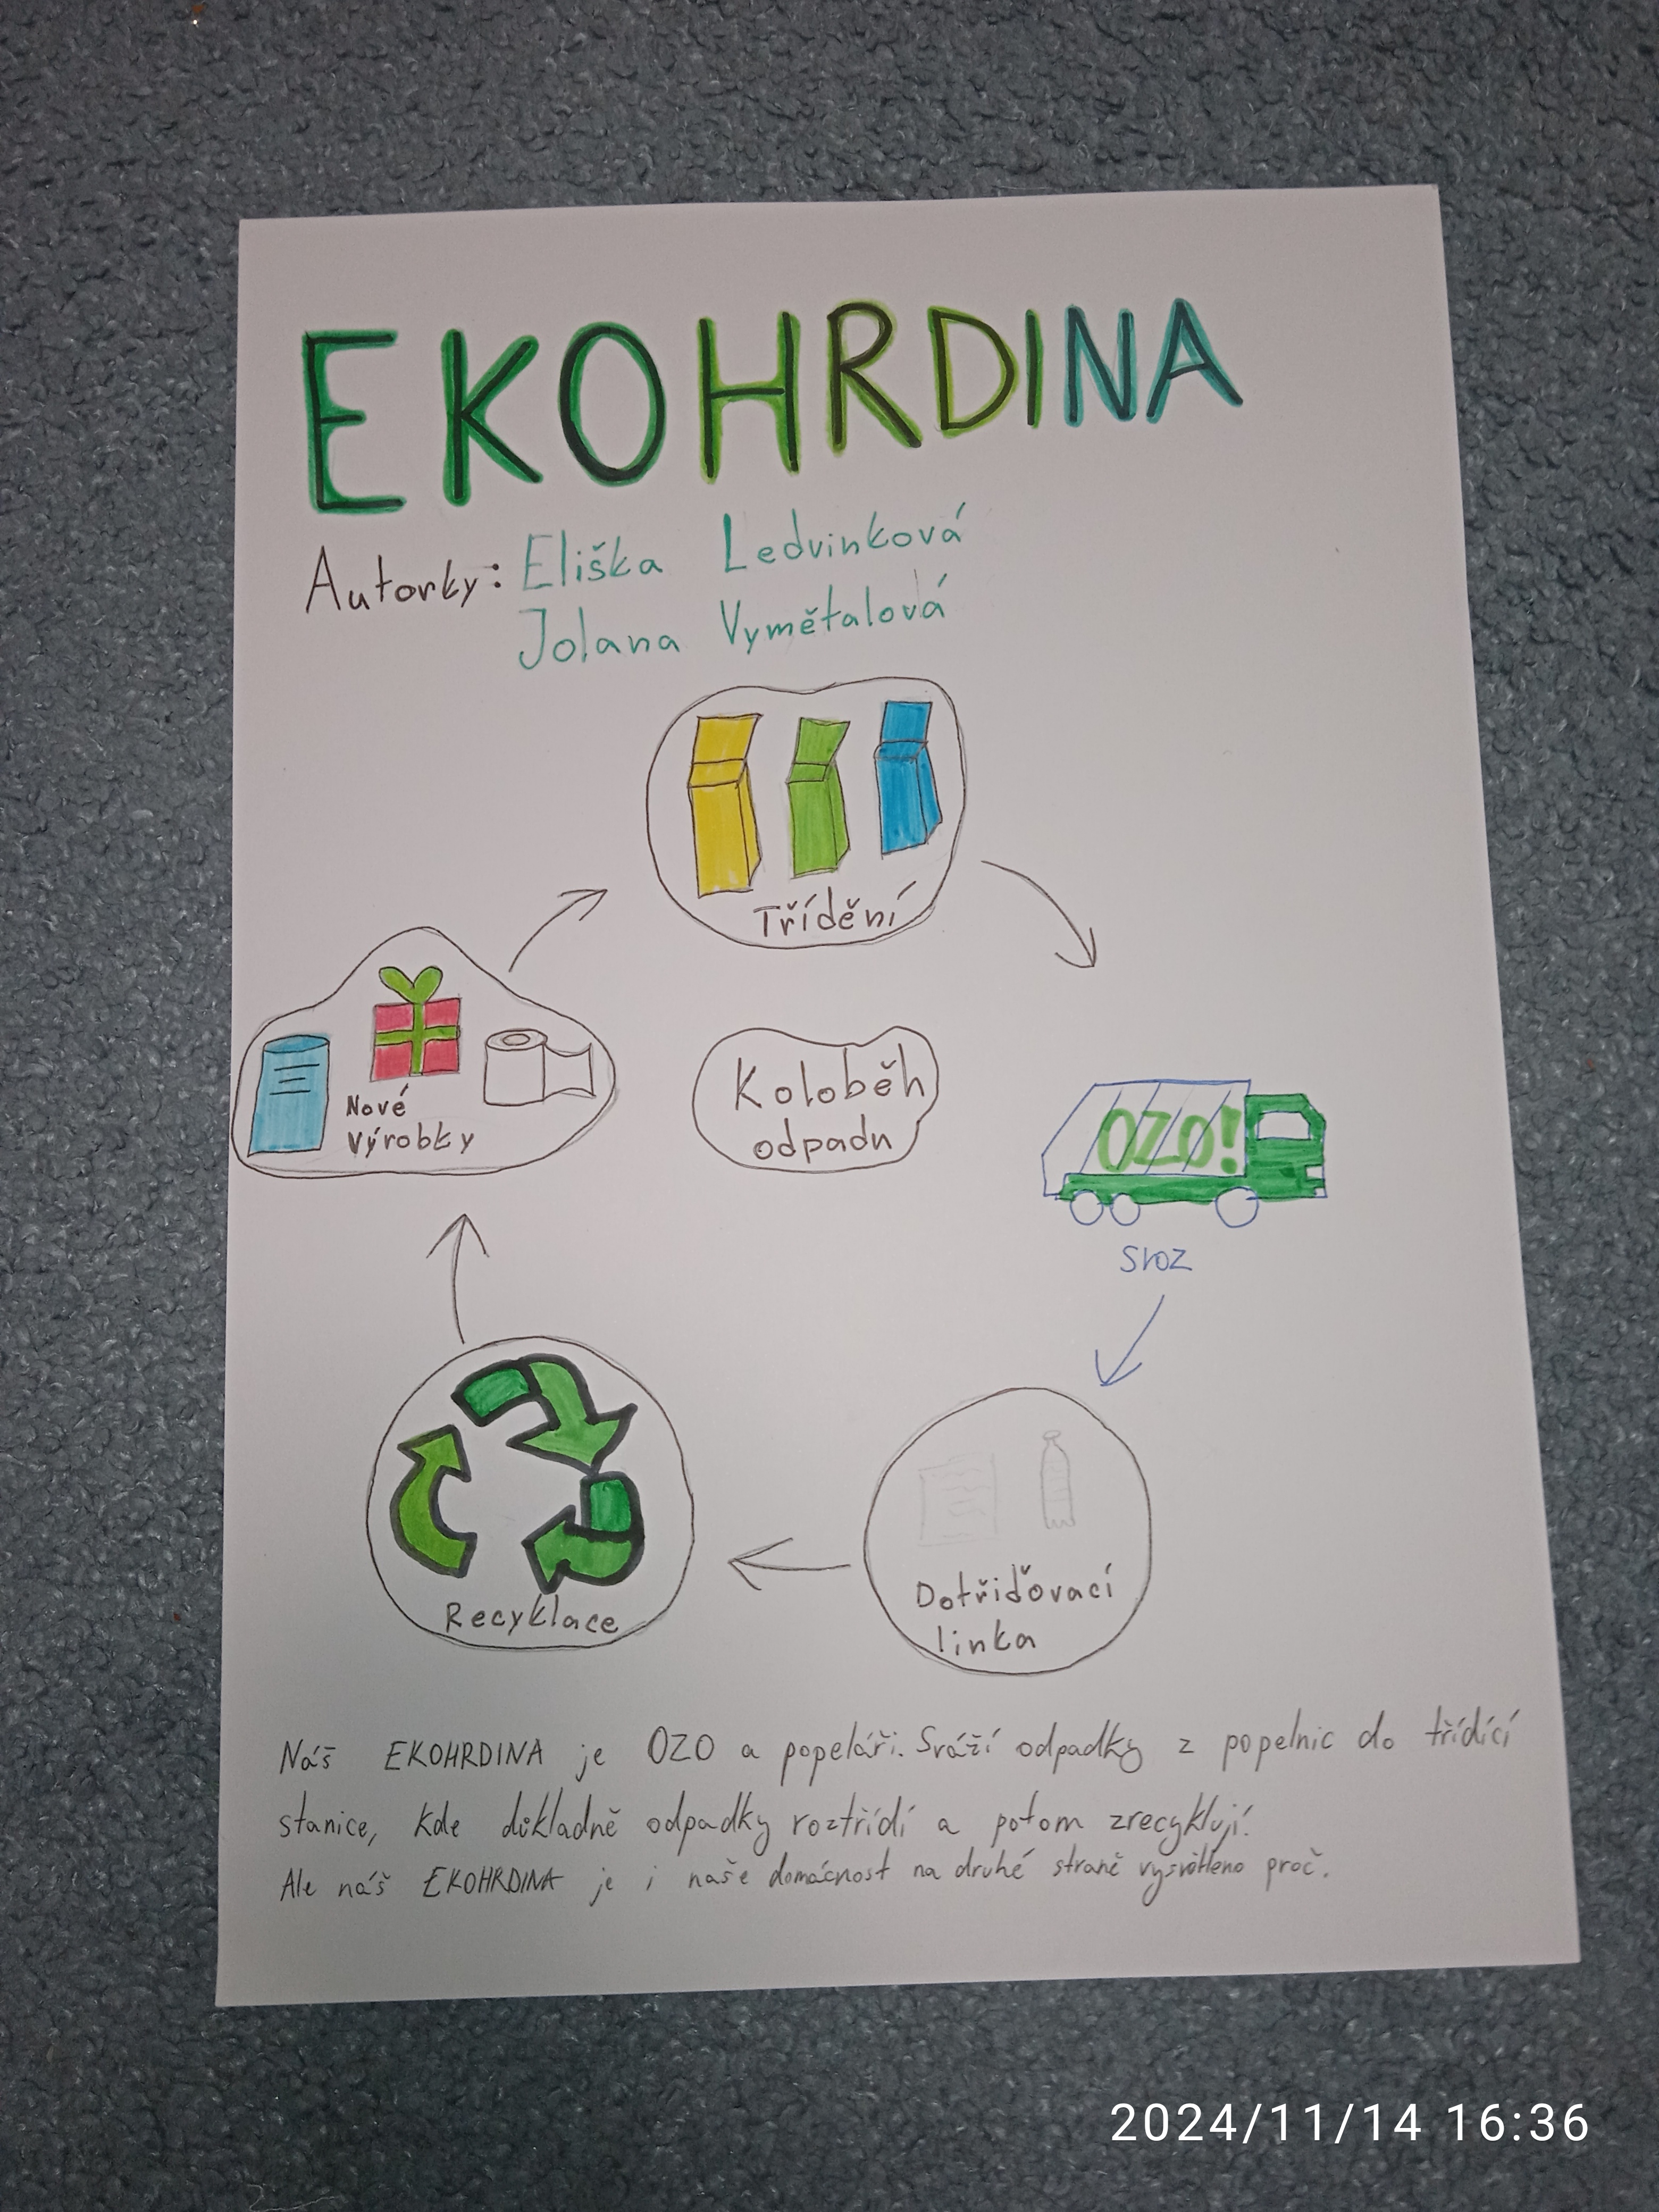 EKOHRDINA
Autorky: Eliška Ledvinková
Jolana Vymětalová
Třídění
Nové
výrobky
Koloběh
odpadu
OZO!
svoz
Recyklace
Dotřiďovací
linka
Náš EKOHRDINA je OZO a popeláři. Sváží odpadky z popelnic do třídící
stanice, kde důkladně odpadky roztřídí a potom zrecyklují.
Ale náš EKOHRDINA je i naše domácnost na druhé straně vysvětleno proč.
2024/11/14 16:36